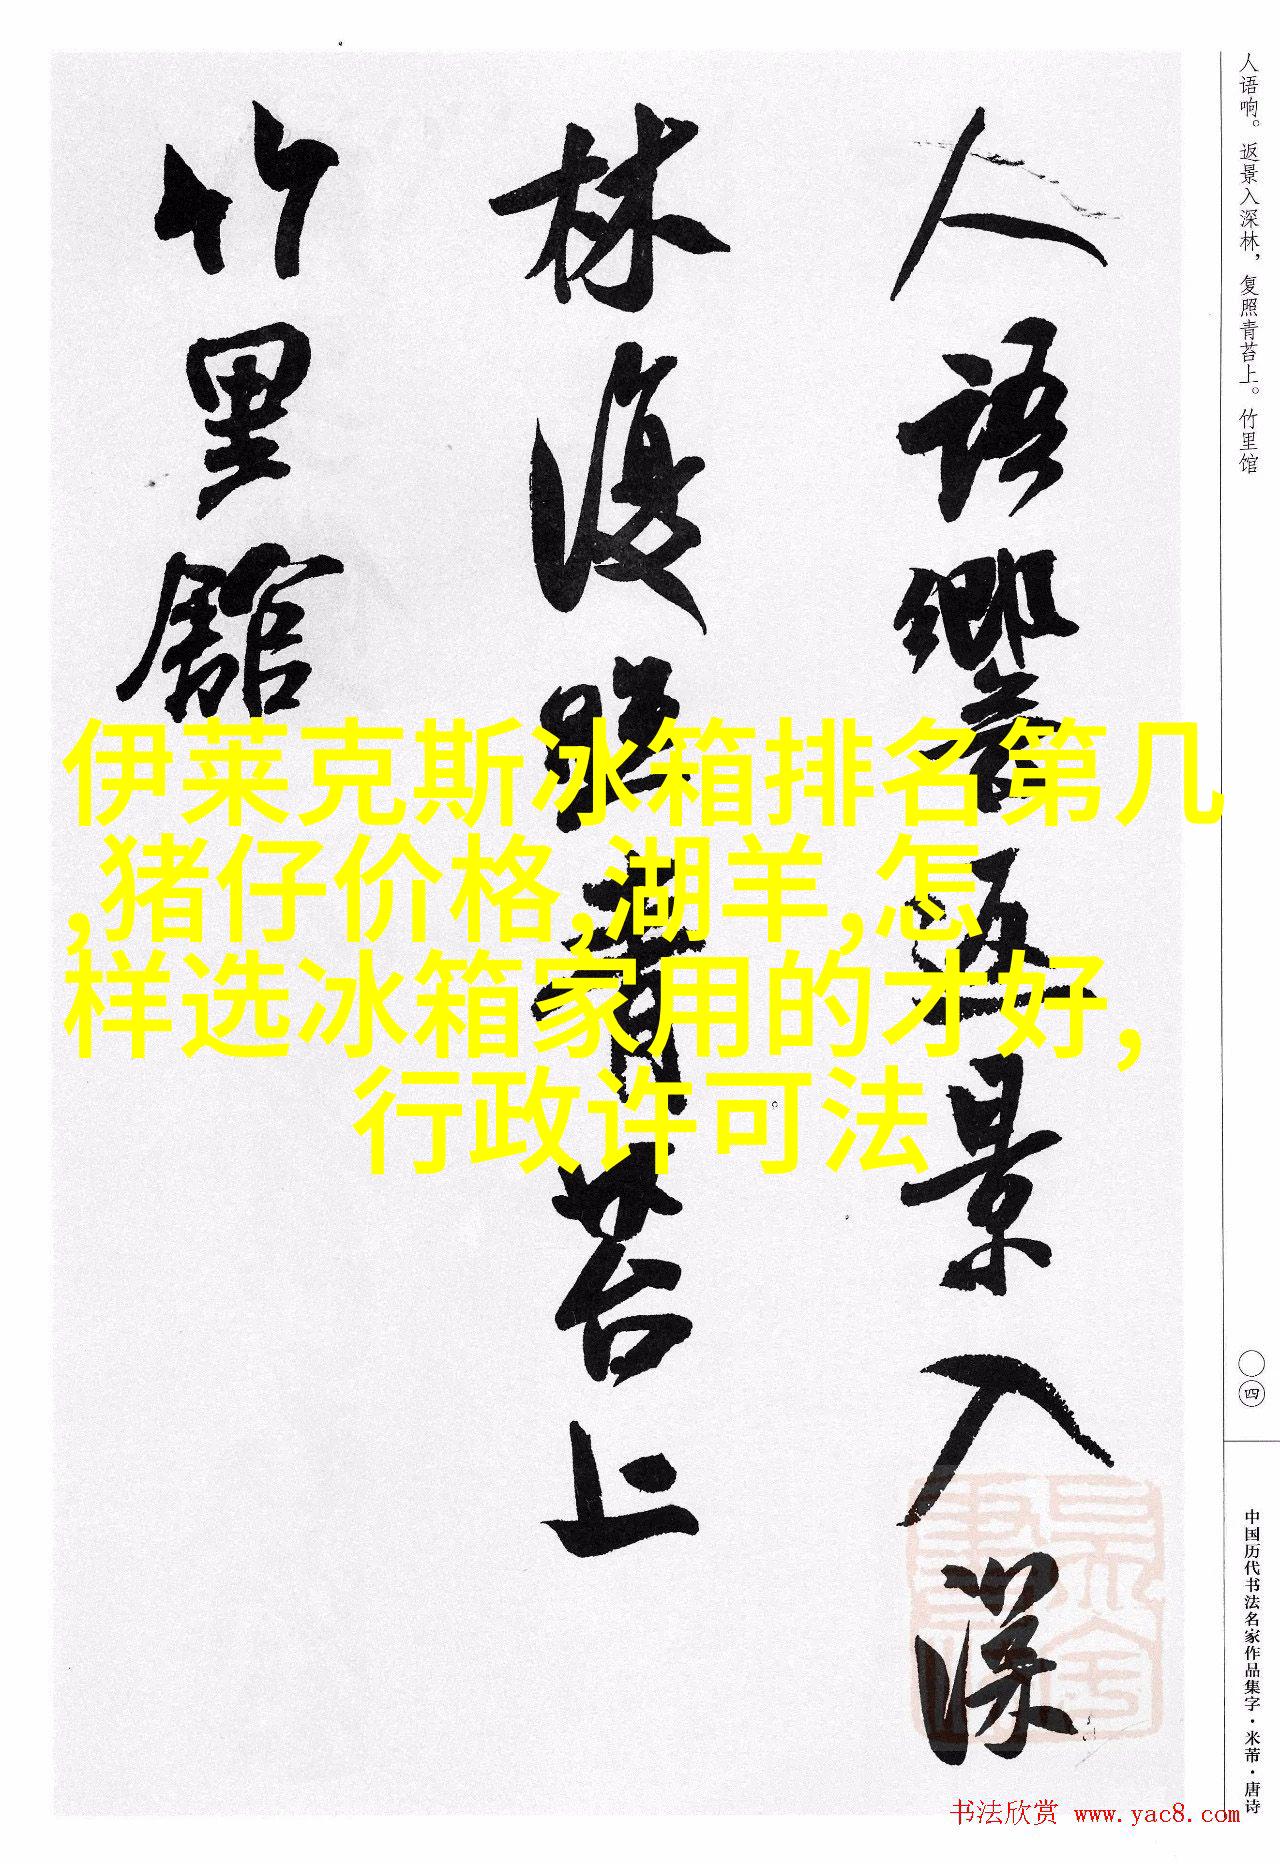 人語響返景入深
林復照青苔上
竹里館
伊莱克斯冰箱排名第几
,猪仔价格,湖羊,怎
样选冰箱家用的才好,
行政许可法
人语响。返景入深林，复照青苔上。竹里馆
〇四
中国历代书法名家作品集字·米芾·唐诗
书法欣赏 www.yac8.com